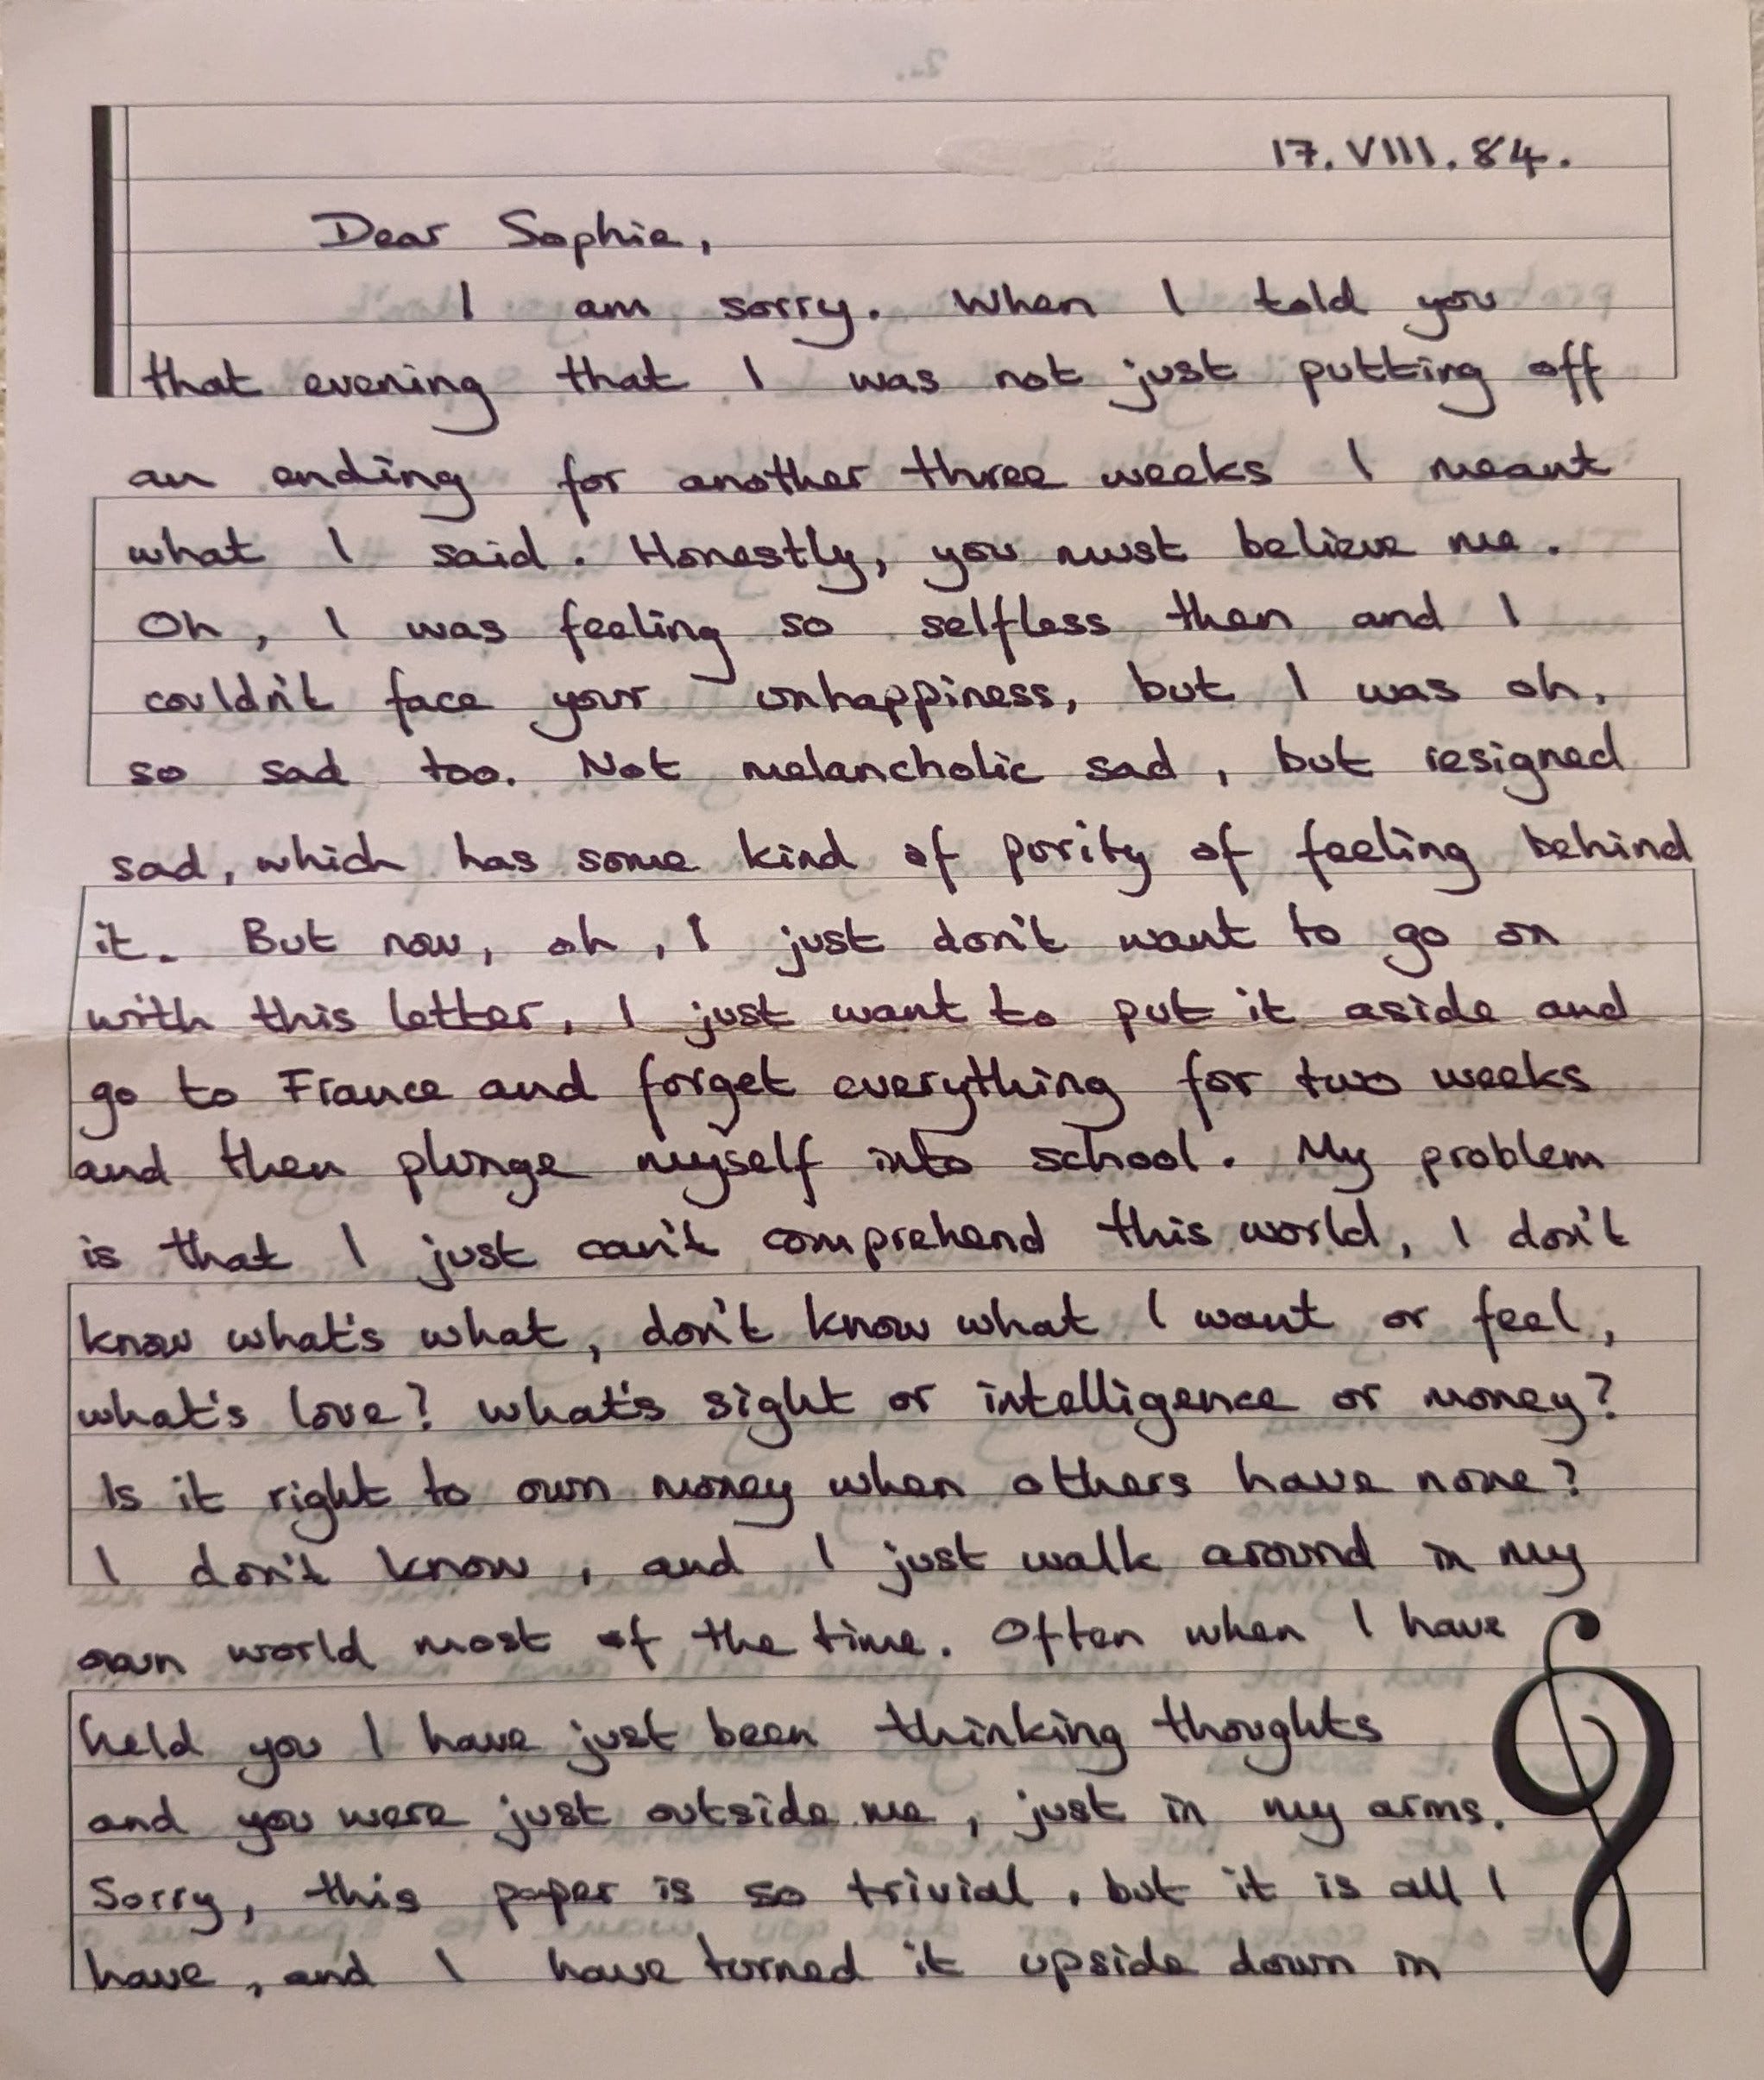 17.VIII.84.
Dear Sophie,
I am sorry. When I told you
that evening that I was not just putting off
an ending for another three weeks I meant
what I said. Honestly, you must believe me.
Oh, I was feeling so selfless then and I
couldn't face your unhappiness, but I was oh,
so sad too. Not melancholic sad, but resigned
sad, which has some kind of purity of feeling behind
it. But now, oh, I just don't want to go on
with this letter, I just want to put it aside and
go to France and forget everything for two weeks
and then plunge myself into school. My problem
is that I just can't comprehend this world, I don't
know what's what, don't know what I want or feel,
what's love? what's sight or intelligence or money?
Is it right to own money when others have none?
I don't know, and I just walk around in my
own world most of the time. Often when I have
held you I have just been thinking thoughts
and you were just outside me, just in my arms.
Sorry, this paper is so trivial, but it is all I
have, and I have turned it upside down in